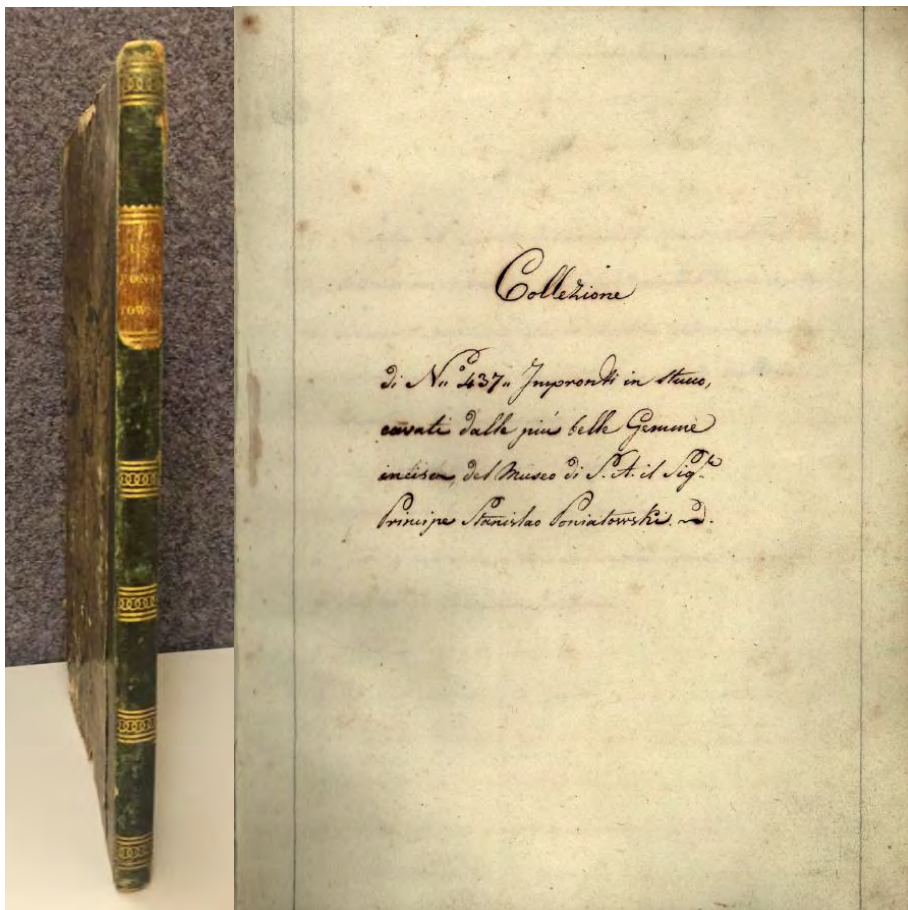 TOWS
Collezione
di N.° 437. Impronti in stucco,
cavati dalle più belle Gemme
incise, del Museo di S. A. il Sig.r
Principe Stanislao Poniatowski